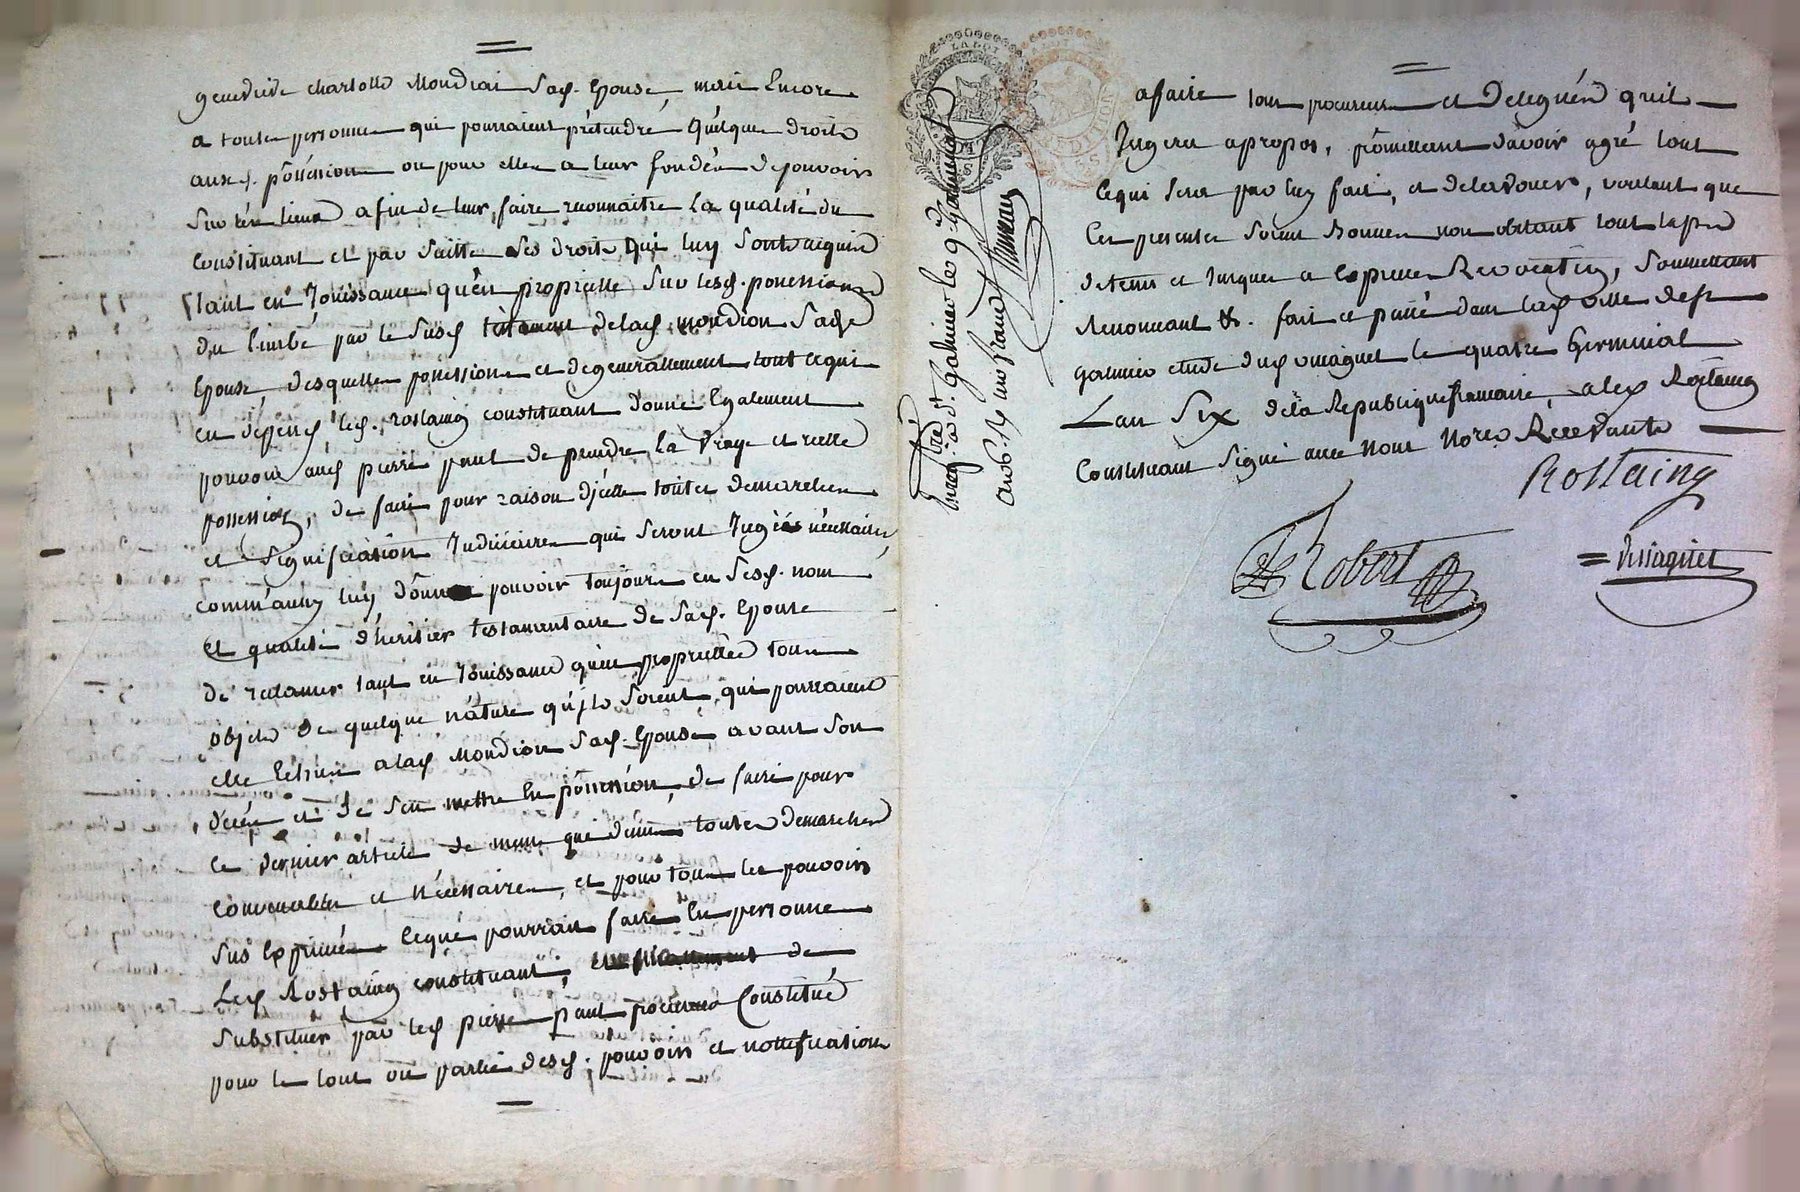 genevieve charlotte Mondion Sad. Epouse, mais Encore
a toute personne qui pourraient prétendre quelque droits
aux d. possession ou pour elles a leur fondés de pouvoirs
sur les lieux afin de leur faire reconnaitre la qualité du
Constituant et par suitte ses droits qui luy sont acquis
tant en Jouissance qu'en propriette sur lesd. possessions
du limbé par le susd testament de lad mondion Sade
Epouse, desquelles possessions et de generallement tout cequi
en dépend, led. rostaing constituant donne Egalement
pouvoir aud pierre paul de prendre la vraye et reelle
possession, de faire pour raison d'jcelle toutes demarches
et signification Judiciaires qui seront Jugées nécessaires,
comm'aussy luy donne pouvoir toujours en sesd. nom
et qualité d'heritier testamentaire de Sad. Epouse
de reclamer tant en Jouissance qu'en propriettée tous
objets de quelque náture qu'jls soient, qui pourraient
etre Echus alad Mondion Sad. Epouse avant son
décés et de s'en mettre En possession, de faire pour
ce dernier article de meme que dessus toutes demarches
convenables et nécessaires, et pour tous les pouvoirs
sus Exprimés ceque pourrait faire En personne
Led Rostaing constituant, de
substituer par led pierre paul procureur Constitué
pour le tout ou partie desd. pouvoirs et nottification
Enreg. a St. Galmier le 9 germinal
an 6. Rd un franc
afaire tous procureurs et Delegués quil
Jugera apropos, promettant d'avoir agré tout
cequi sera par luy fait, et delavouer, voulant que
Ces presentes soient Bonnes non obstant tout laps
de tems et Jusques a Expresse Revocation, soumettant
Renonçant &. fait et passé dans lad ville de st
galmier etude dud vinaguet le quatre Germinal
Lan Six de la Republique francaise, aled Rostaing
Constituant signé avec Nous Nores Recevants
Rostaing
Robert